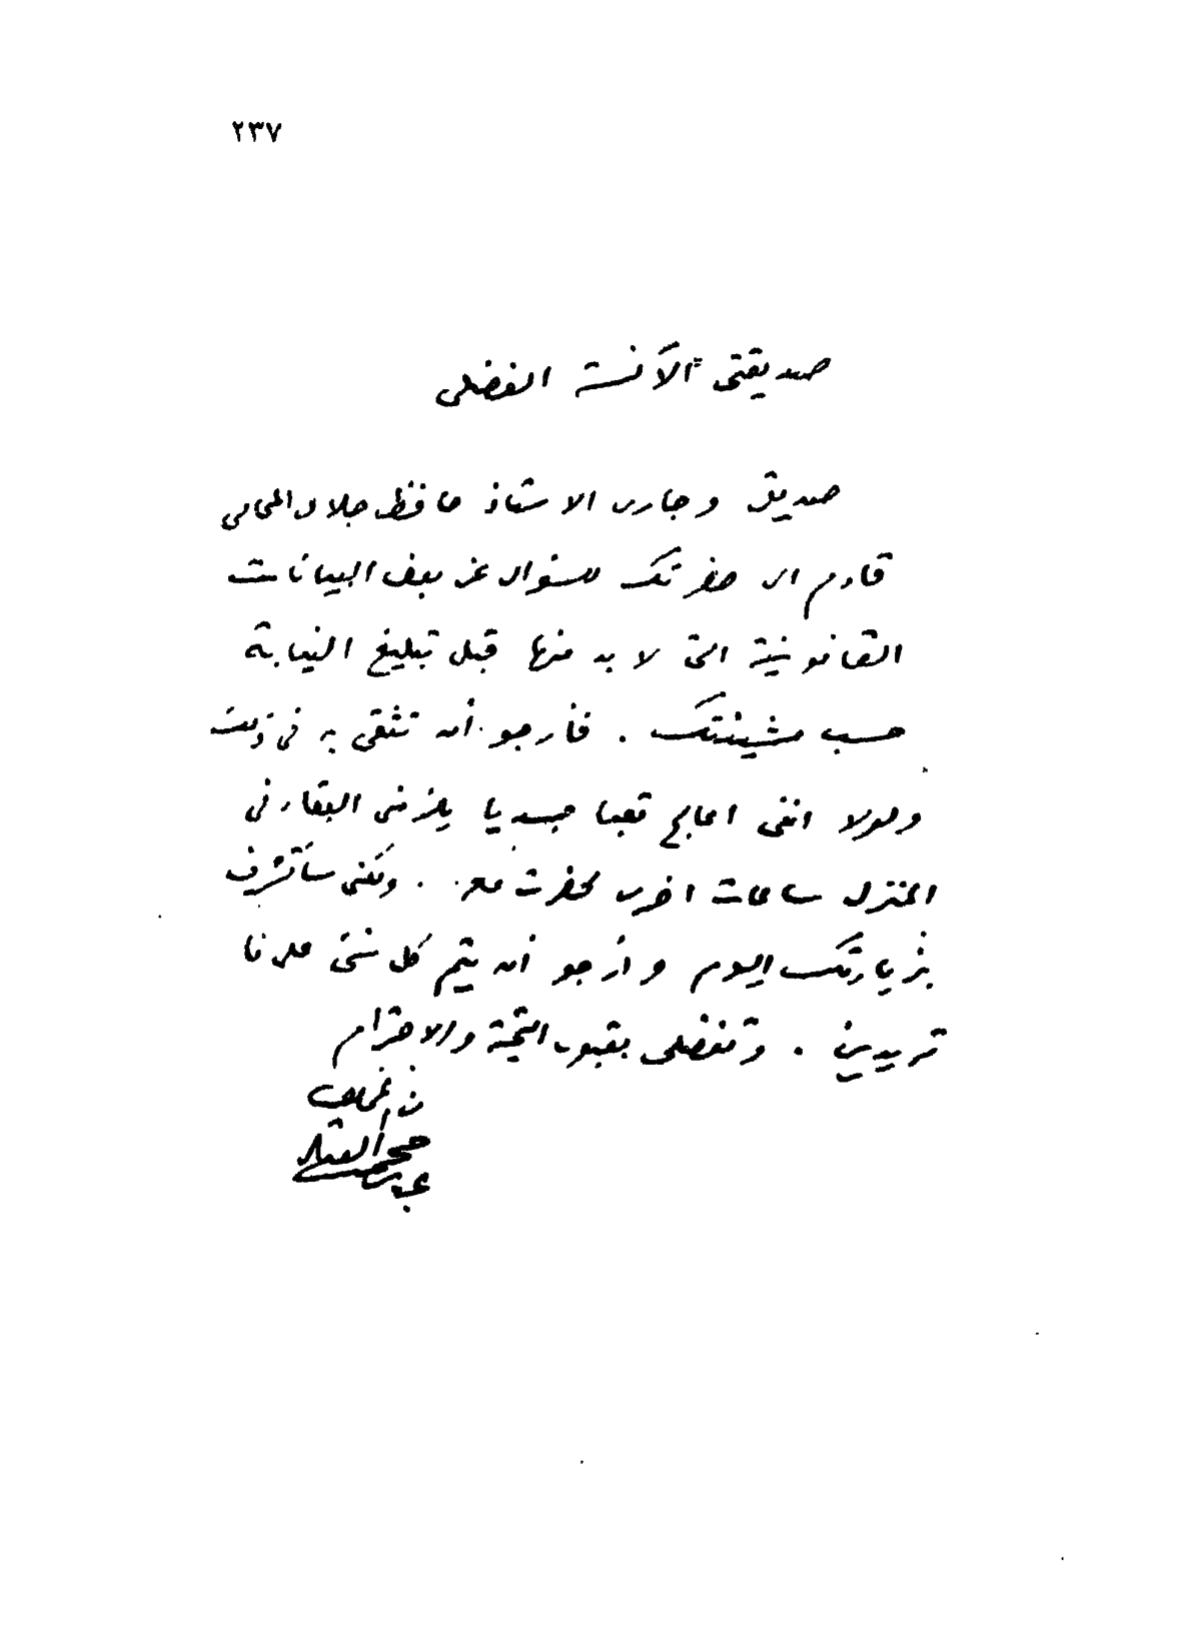 ٢٣٧
صديقتى الآنسة الفضلى
صديقى وجارى الاستاذ حافظ جلال المحامى
قادم الى حضرتك للسؤال عن بعض البيانات
القانونية التى لا بد منها قبل تبليغ النيابة
حسب مشيئتك . فأرجو أن تثقى به فى ذلك
ولولا اننى اعالج تعبا جسديا يلزمنى البقاء فى
المنزل ساعات اخرى لحضرت معه . ولكنى سأتشرف
بزيارتك اليوم وأرجو أن يتم كل شئ على ما
تريدين . وتفضلى بقبول التحية والاحترام
من المخلص
عباس محمود العقاد